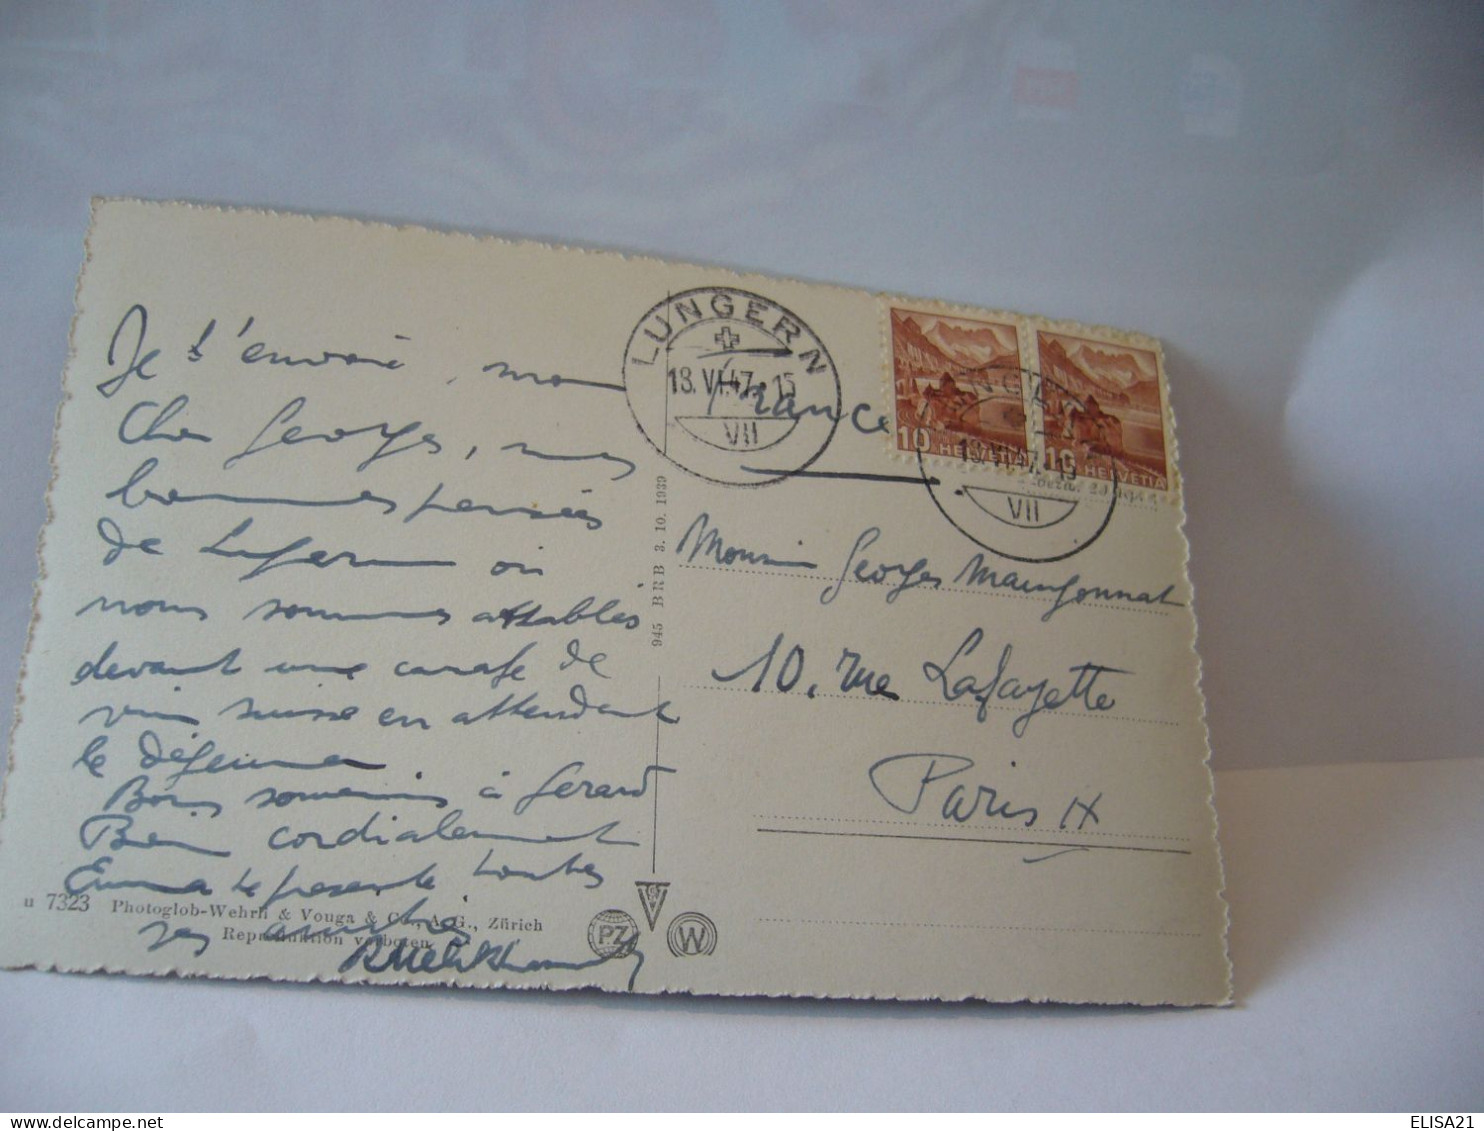 Je t'envoie, mon
Cher Georges, mes
bonnes pensées
de Lungern où
nous sommes attablés
devant une carafe de
vin suisse en attendant
le déjeuner
Bons souvenirs à Gérard
Bien cordialement
Emma te présente toutes
ses amitiés
u 7323 Photoglob-Wehrli & Vouga & Co., A.G., Zürich
Reproduktion verboten
945 BRB 3. 10. 1939
PZ
W
LUNGERN
18.VI.47.15
VII
France
10 HELVETIA
10 HELVETIA
18.VI.47.15
VII
Monsieur Georges Maingonnat
10, rue Lafayette
Paris IX
ELISA21